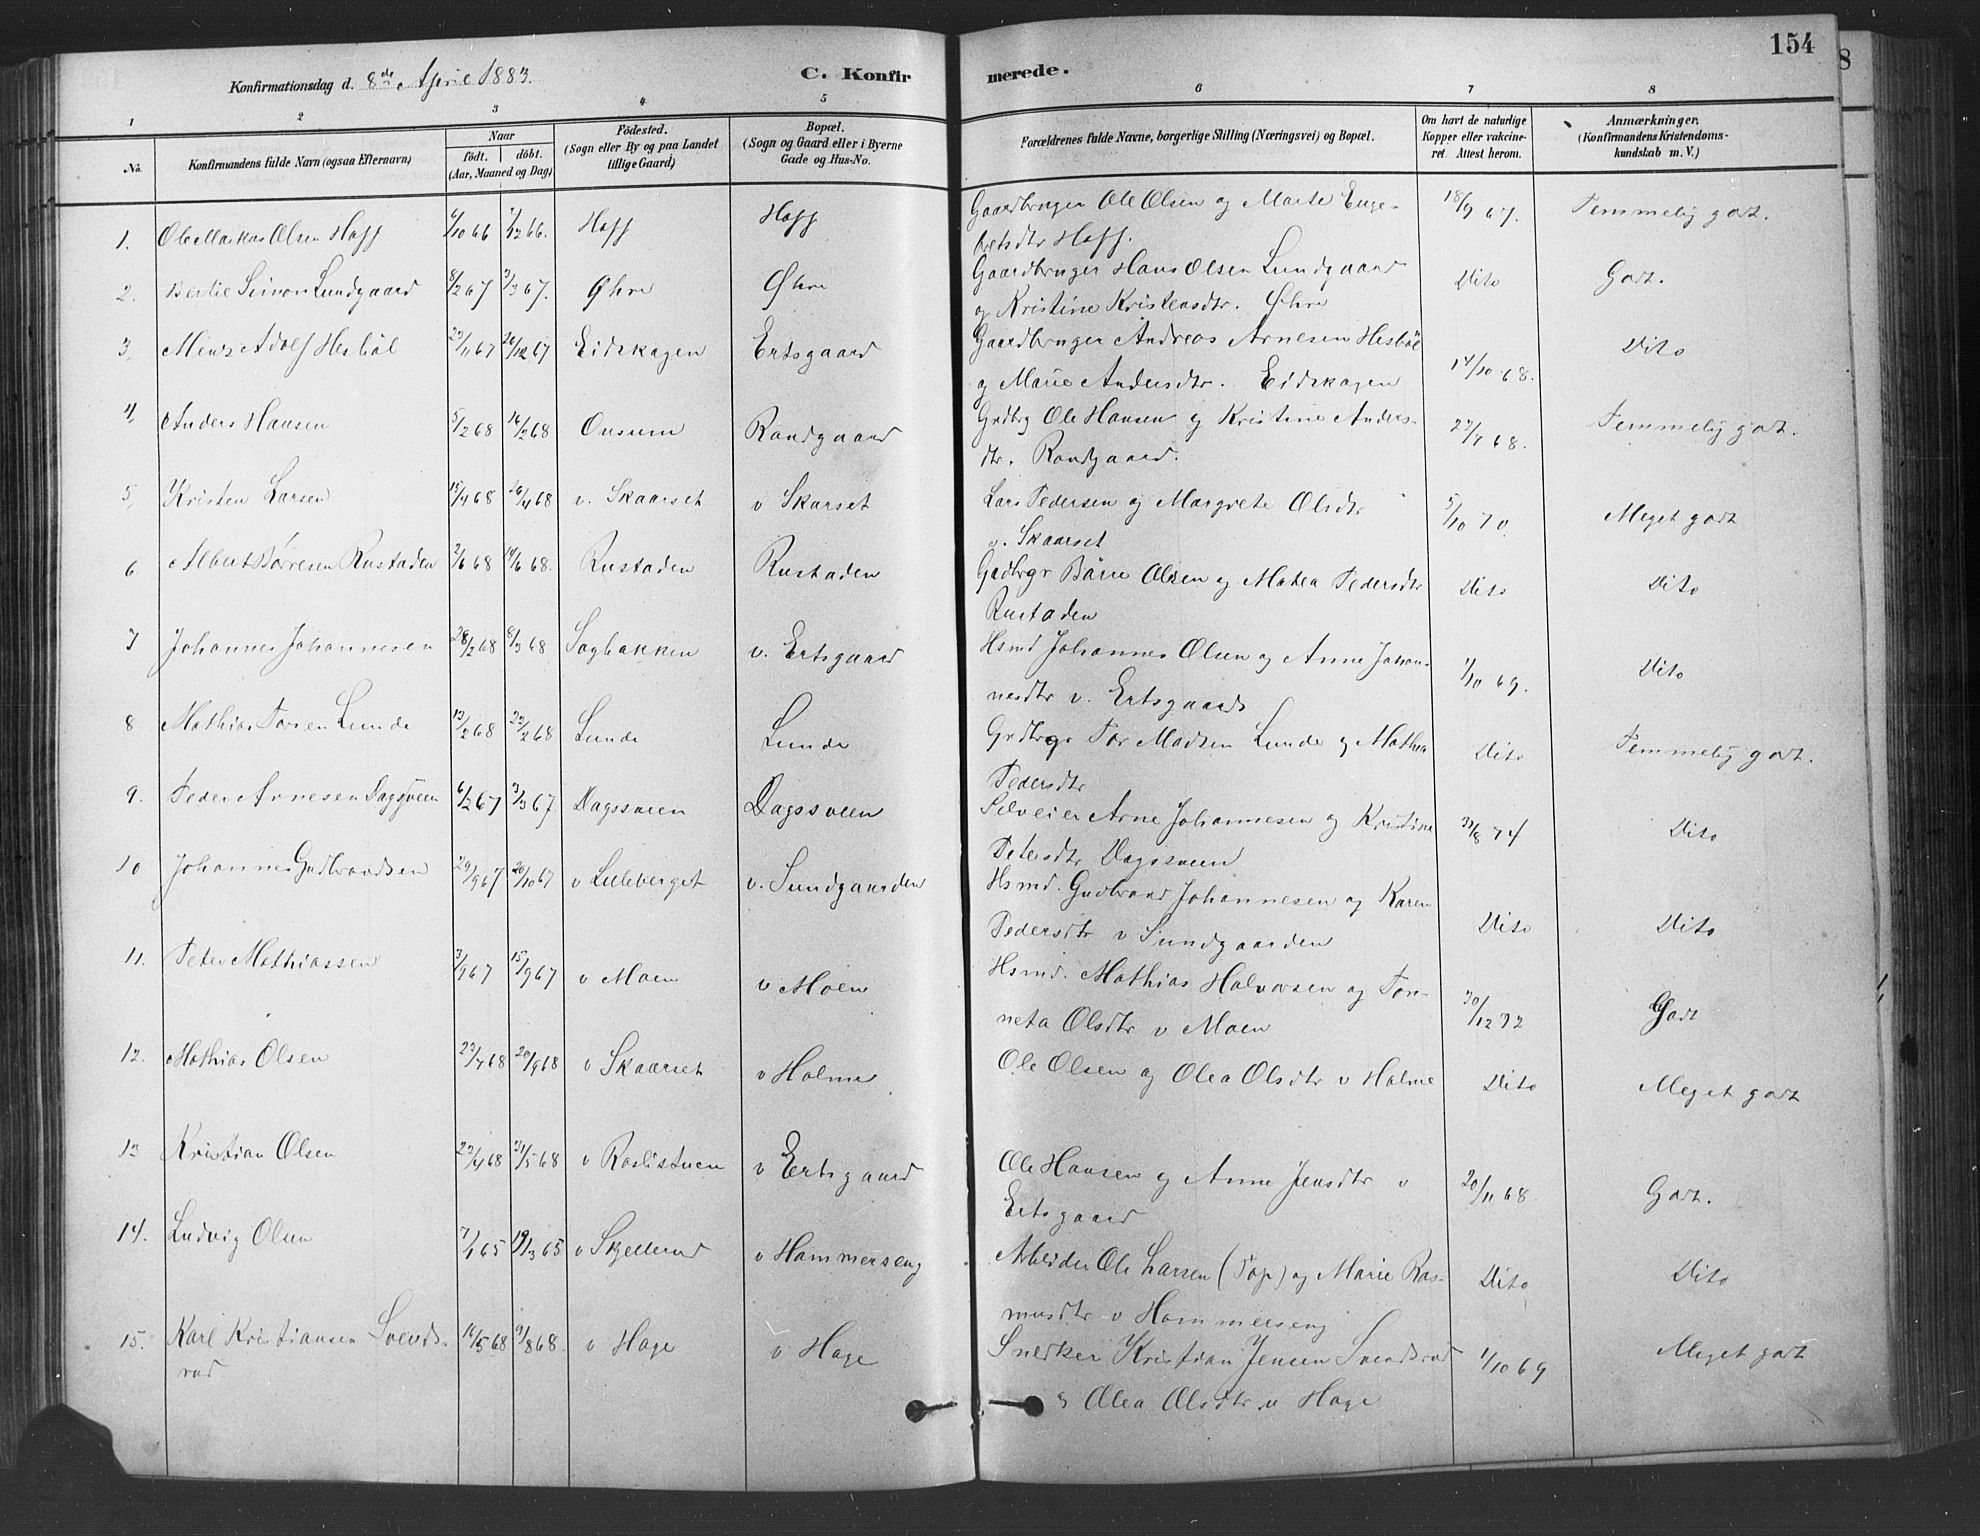 154
8
Konfirmationsdag d. 8de April 1883.
C. Konfirmerede.
1 2 3 4 5 6 7 8
No. Konfirmandens fulde Navn (ogsaa Efternavn) Naar födt. döbt. (Aar, Maaned og Dag) Födested. (Sogn eller By og paa Landet tillige Gaard) Bopæl. (Sogn og Gaard eller i Byerne Gade og Hus-No. Forældrenes fulde Navne, borgerlige Stilling (Næringsvei) og Bopæl. Om havt de naturlige Kopper eller vakcineret. Attest herom. Anmærkninger. (Konfirmandens Kristendomskundskab m. V.)
1. Ole Markus Olsen Hoff 6/10 66 1/12 66. Hoff Hoff Gaardbruger Ole Olsen og Marte Enge- 18/9 67. Temmelig godt.
bretsdtr Hoff.
2. Bertie Simon Lundgaard 8/2 67 3/3 67. Öhre Öhre Gaardbruger Hans Olsen Lundgaard Dito Godt.
og Kristine Kristensdtr. Öhre
3. Adolf Hesböl 23/11 67 26/12 67 Eidskogen Ertsgaard Gaardbruger Andreas Arnesen Hesböl 14/10 68. Dito
og Marie Andersdtr. Eidskogen
4. Anders Hansen 5/2 68 16/2 68 Onsum Randgaard Grdbrg Ole Hansen og Kristine Anders- 68. Temmelig godt.
dtr. Randgaard.
5. Kristen Larsen 15/4 68 26/4 68 v. Skaarset v Skarset Lars Pedersen og Margrete Olsdtr 5/10 70. Meget godt
v. Skaarset
6 Albert Börresen Rustaden 2/6 68 14/6 68. Rustaden Rustaden Grdbrgr Börre Olsen og Matea Pedersdtr Dito Dito
Rustaden
7 Johannes Johannesen 28/2 68 8/3 68 Sagbakken v. Ertsgaard Hsmd Johannes Olsen og Anne Johan- 1/10 69. Dito
nesdtr v. Ertsgaard
8 Mathias Torsen Lunde 13/2 68 23/2 68 Lunde Lunde Grdbrgr Tor Madsen Lunde og Mathea Dito Temmelig godt.
Pedersdtr
9. Peder Arnesen Dagsveen 6/2 67 3/3 67. Dagssveen Dagssveen Selveier Arne Johannesen og Kristine 74 Dito
Petersdtr Dagssveen
10 Johannes Gudbrandsen 29/9 67 20/10 67 v Lilleberget v. Sundgaarden Hsmd. Gudbrand Johannesen og Karen Dito Dito
Pedersdtr v Sundgaarden
11. Peter Mathiassen 3/9 67 15/9 67 v Moen v Moen Hsmd. Mathias Halvorsen og Ton- 30/12 72 Godt
neta Olsdtr v Moen
12. Mathias Olsen 23/7 68 20/9 68 v Skaarset v Holme Ole Olsen og Olea Olsdtr v Holme Dito Meget godt
13 Kristian Olsen 23/4 68 31/5 68 v Roslistuen v Ertsgaard Ole Hansen og Anne Jensdtr v 20/11 68. Godt.
Ertsgaard
14. Ludvig Olsen 7/1 65 19/3 65 v Skjellerud v Hammerseng Arbeider Ole Larsen (Top) og Marie Ras- Dito Dito
musdtr v Hammerseng
15. Karl Kristiansen Svends- 16/5 68 9/8 68. v Hage v Hage Snedker Kristian Jensen Svendsrud 1/10 69 Meget godt
rud og Olea Olsdtr v Hage